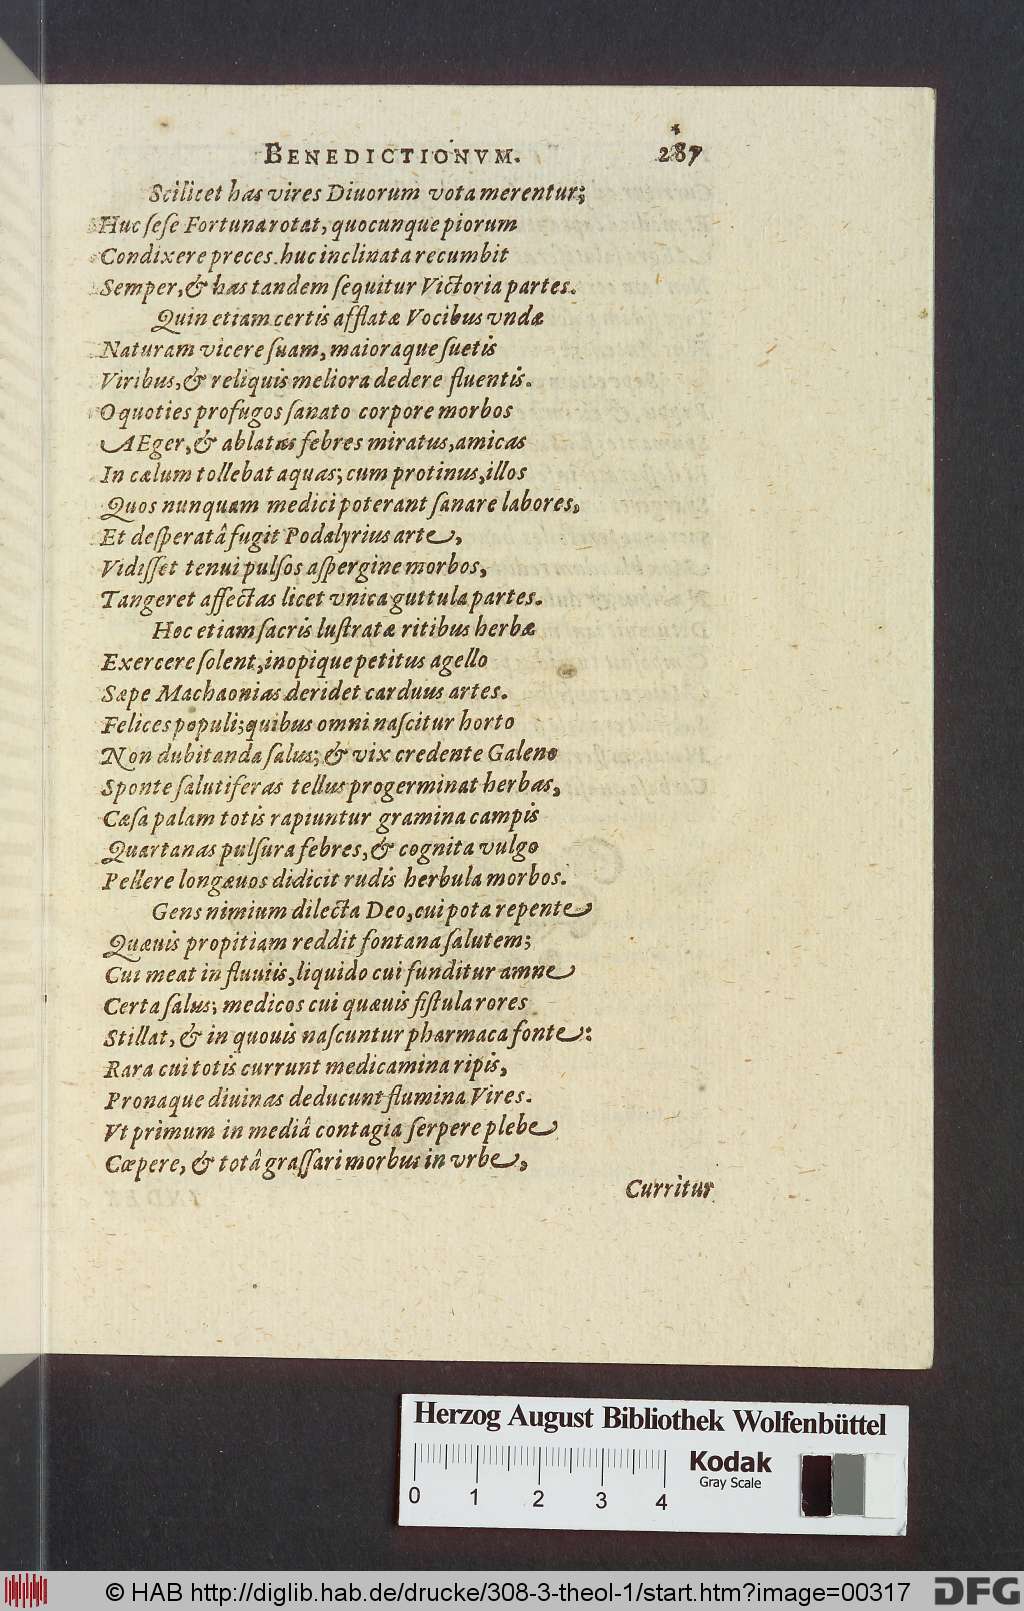 BENEDICTIONVM. 287
Scilicet has vires Diuorum vota merentur;
Huc sese Fortuna rotat, quocunque piorum
Condixere preces, huc inclinata recumbit
Semper, & has tandem sequitur Victoria partes.
Quin etiam certis afflatæ Vocibus vndæ
Naturam vicere suam, maioraque suetis
Viribus, & reliquis meliora dedere fluentis.
O quoties profugos sanato corpore morbos
AEger, & ablatas febres miratus, amicas
In cælum tollebat aquas; cum protinus, illos
Quos nunquam medici poterant sanare labores,
Et desperatâ fugit Podalyrius arte,
Vidisset tenui pulsos aspergine morbos,
Tangeret affectas licet vnica guttula partes.
Hoc etiam sacris lustratæ ritibus herbæ
Exercere solent, inopique petitus agello
Sæpe Machaonias deridet carduus artes.
Felices populi; quibus omni nascitur horto
Non dubitanda salus; & vix credente Galeno
Sponte salutiferas tellus progerminat herbas,
Cæsa palam totis rapiuntur gramina campis
Quartanas pulsura febres, & cognita vulgo
Pellere longæuos didicit rudis herbula morbos.
Gens nimium dilecta Deo, cui pota repente
Quæuis propitiam reddit fontana salutem;
Cui meat in fluuiis, liquido cui funditur amne
Certa salus; medicos cui quæuis fistula rores
Stillat, & in quouis nascuntur pharmaca fonte:
Rara cui totis currunt medicamina ripis,
Pronaque diuinas deducunt flumina Vires.
Vt primum in mediâ contagia serpere plebe
Cœpere, & totâ grassari morbus in vrbe,
Curritur
Herzog August Bibliothek Wolfenbüttel
Kodak
Gray Scale
0 1 2 3 4
© HAB http://diglib.hab.de/drucke/308-3-theol-1/start.htm?image=00317
DFG